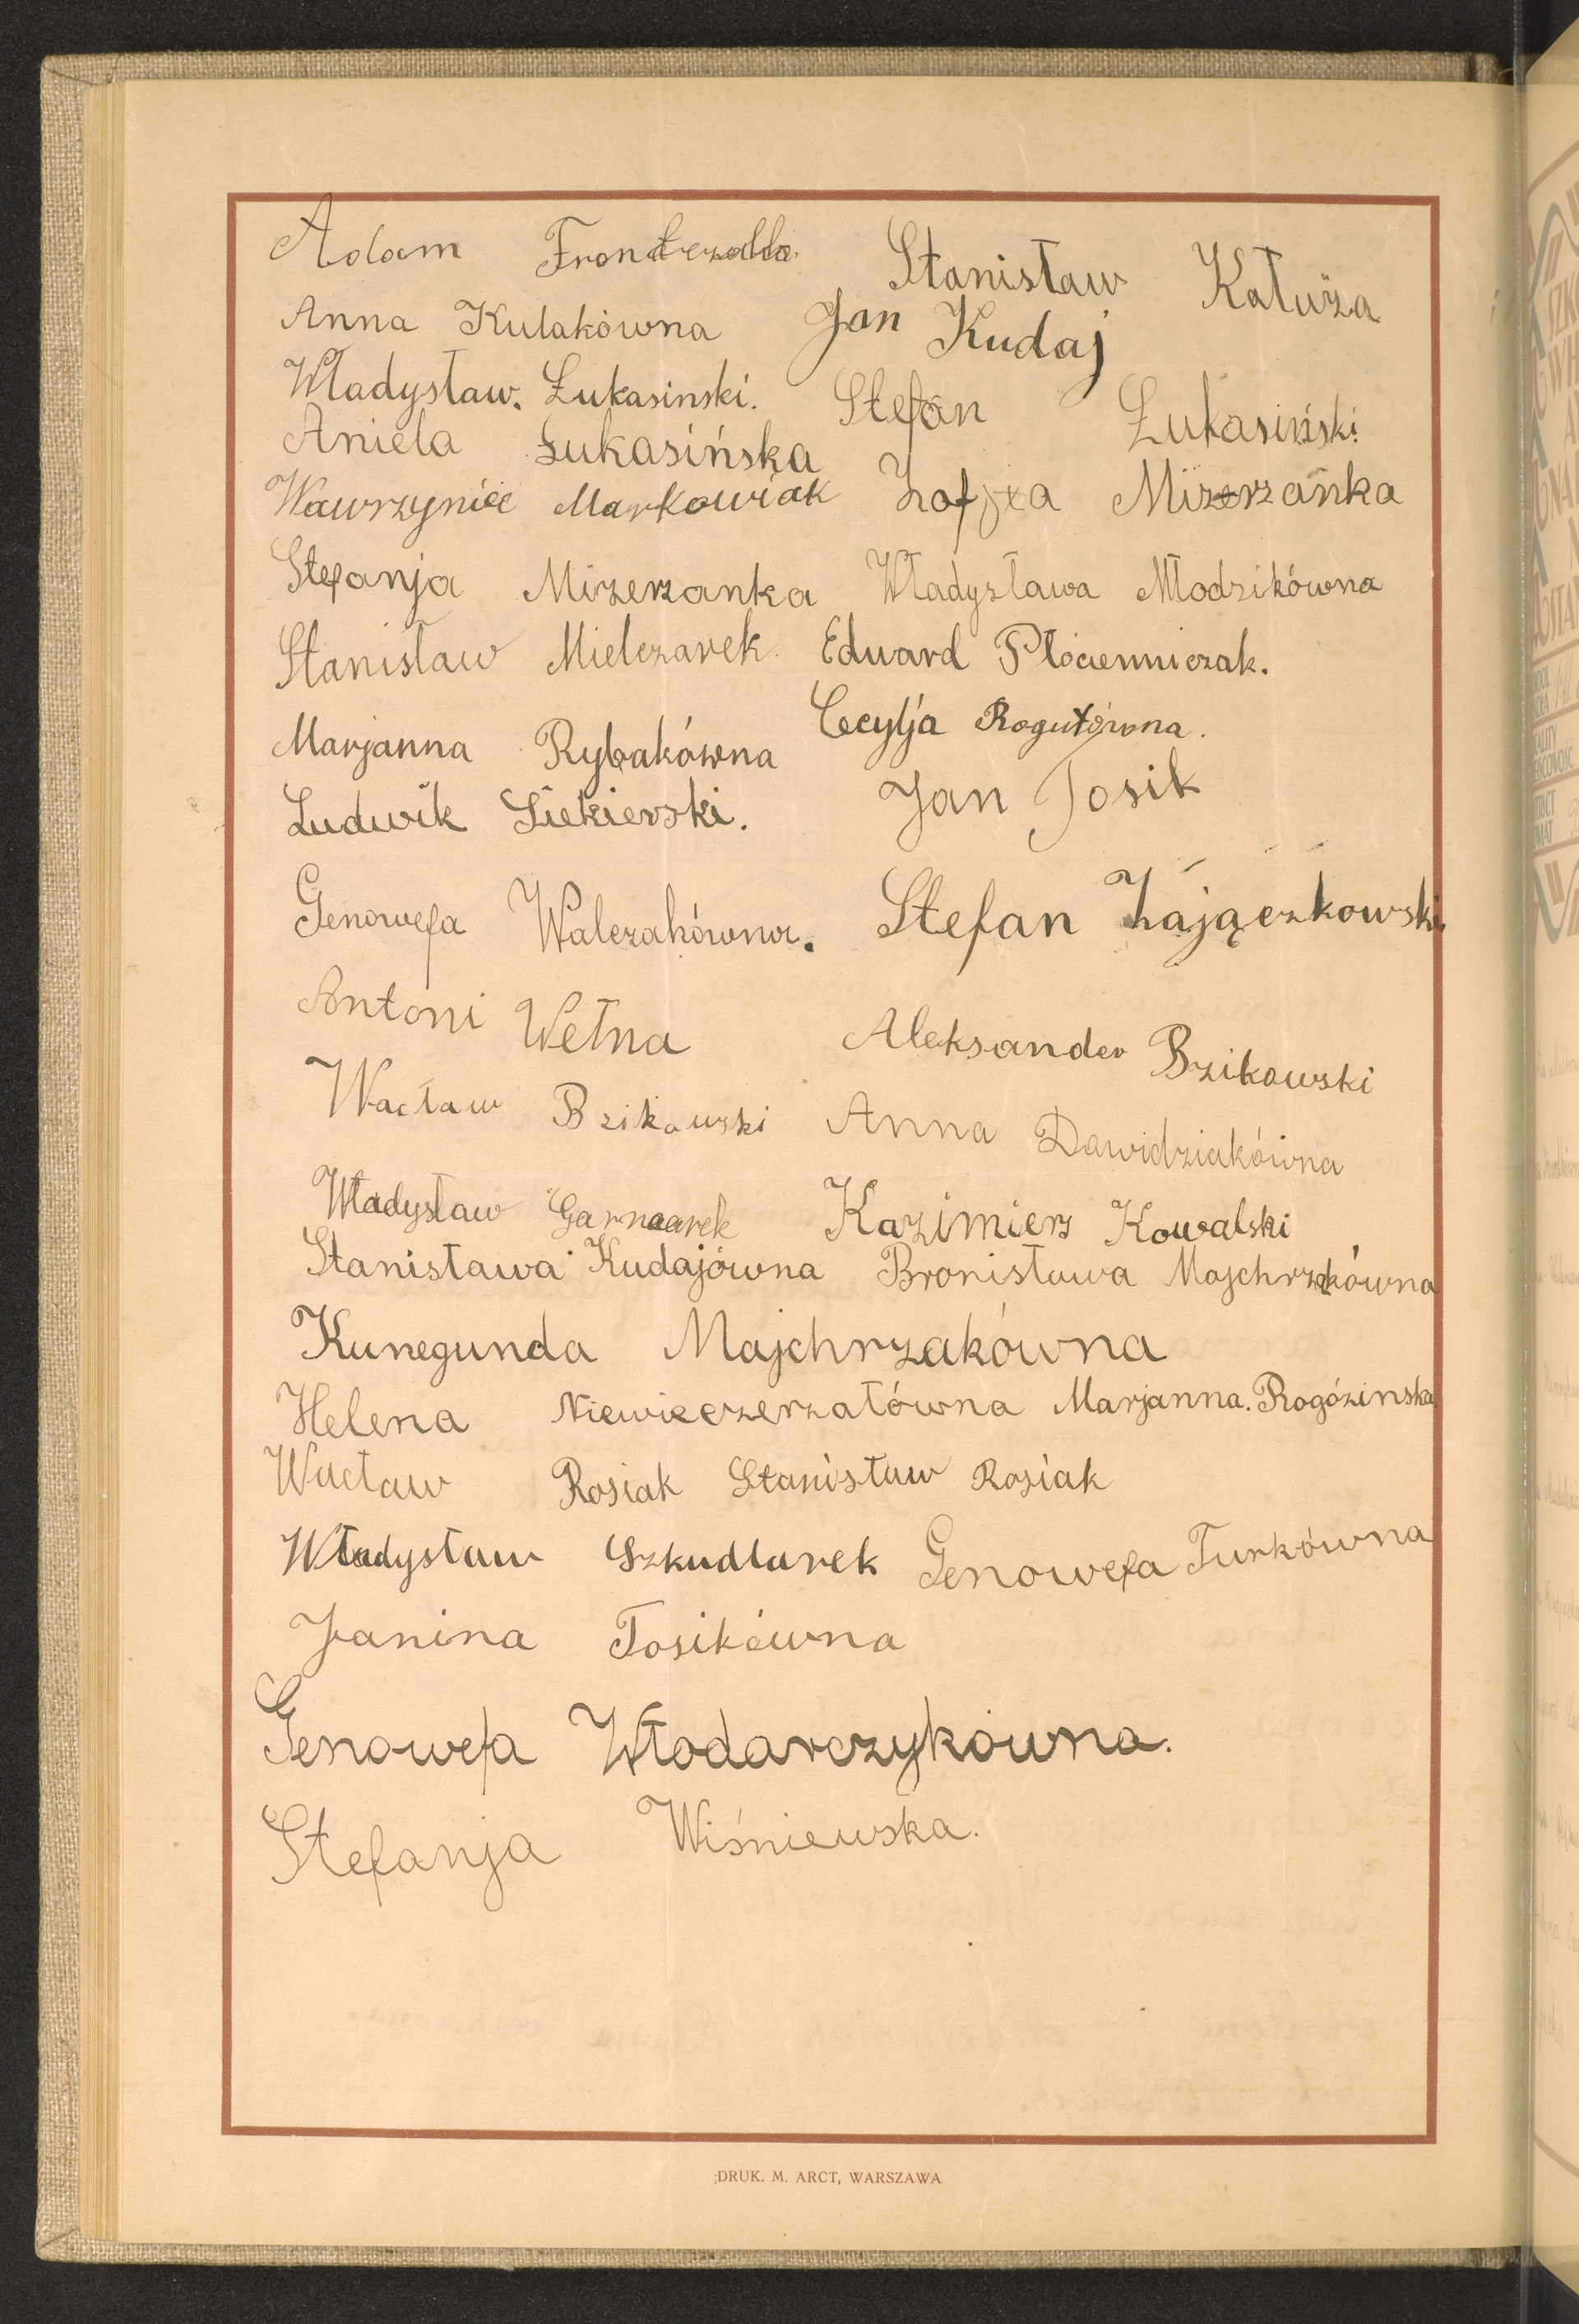 Adam Stanisław Kałuża
Anna Kulakówna Jan Kudaj
Władysław. Łukasinski. Stefan Łukasiński
Aniela Łukasińska
Wawrzyniec Markowiak Zofja Mizerzanka
Stefanja Mizerzanka Władysława Młodzikówna
Stanisław Mielczarek. Eduard Płócienniczak.
Marjanna Rybakówna Cecylja Rogutówna.
Ludwik Siekierski. Jan Tosik
Genowefa Walczakówna. Stefan Zajączkowski
Antoni Wełna Aleksander Bzikowski
Wacław Bzikowski Anna Dawidziakówna
Władysław Garnaarek Kazimierz Kowalski
Stanisława Kudajówna Bronisława Majchrzakówna
Kunegunda Majchrzakówna
Helena Niewieczerzałówna Marjanna. Rogózinska
Wacław Rosiak Stanisław Rosiak
Władysław Szkudlarek Genowefa Turkówna
Janina Tosikówna
Genowefa Włodarczykówna.
Stefanja Wiśniewska.
DRUK. M. ARCT, WARSZAWA